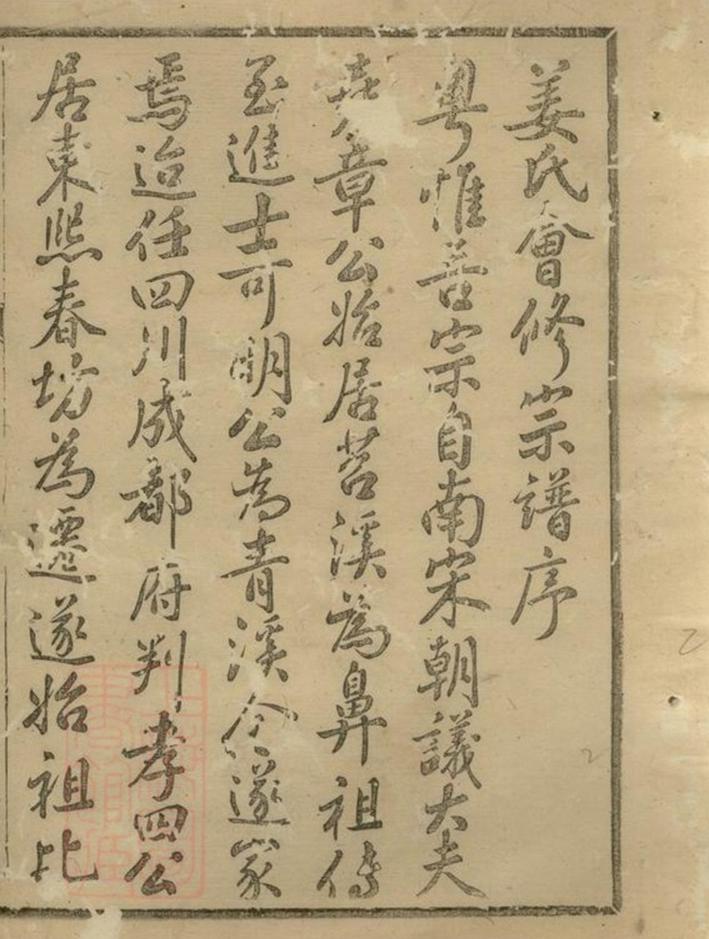 姜氏會修宗譜序
粤惟吾宗自南宋朝議大夫
堯章公始居苕溪為鼻祖傳
至進士可明公為青溪令遂家
焉迨任四川成都府判孝四公
居東熙春坊為遷遂始祖比